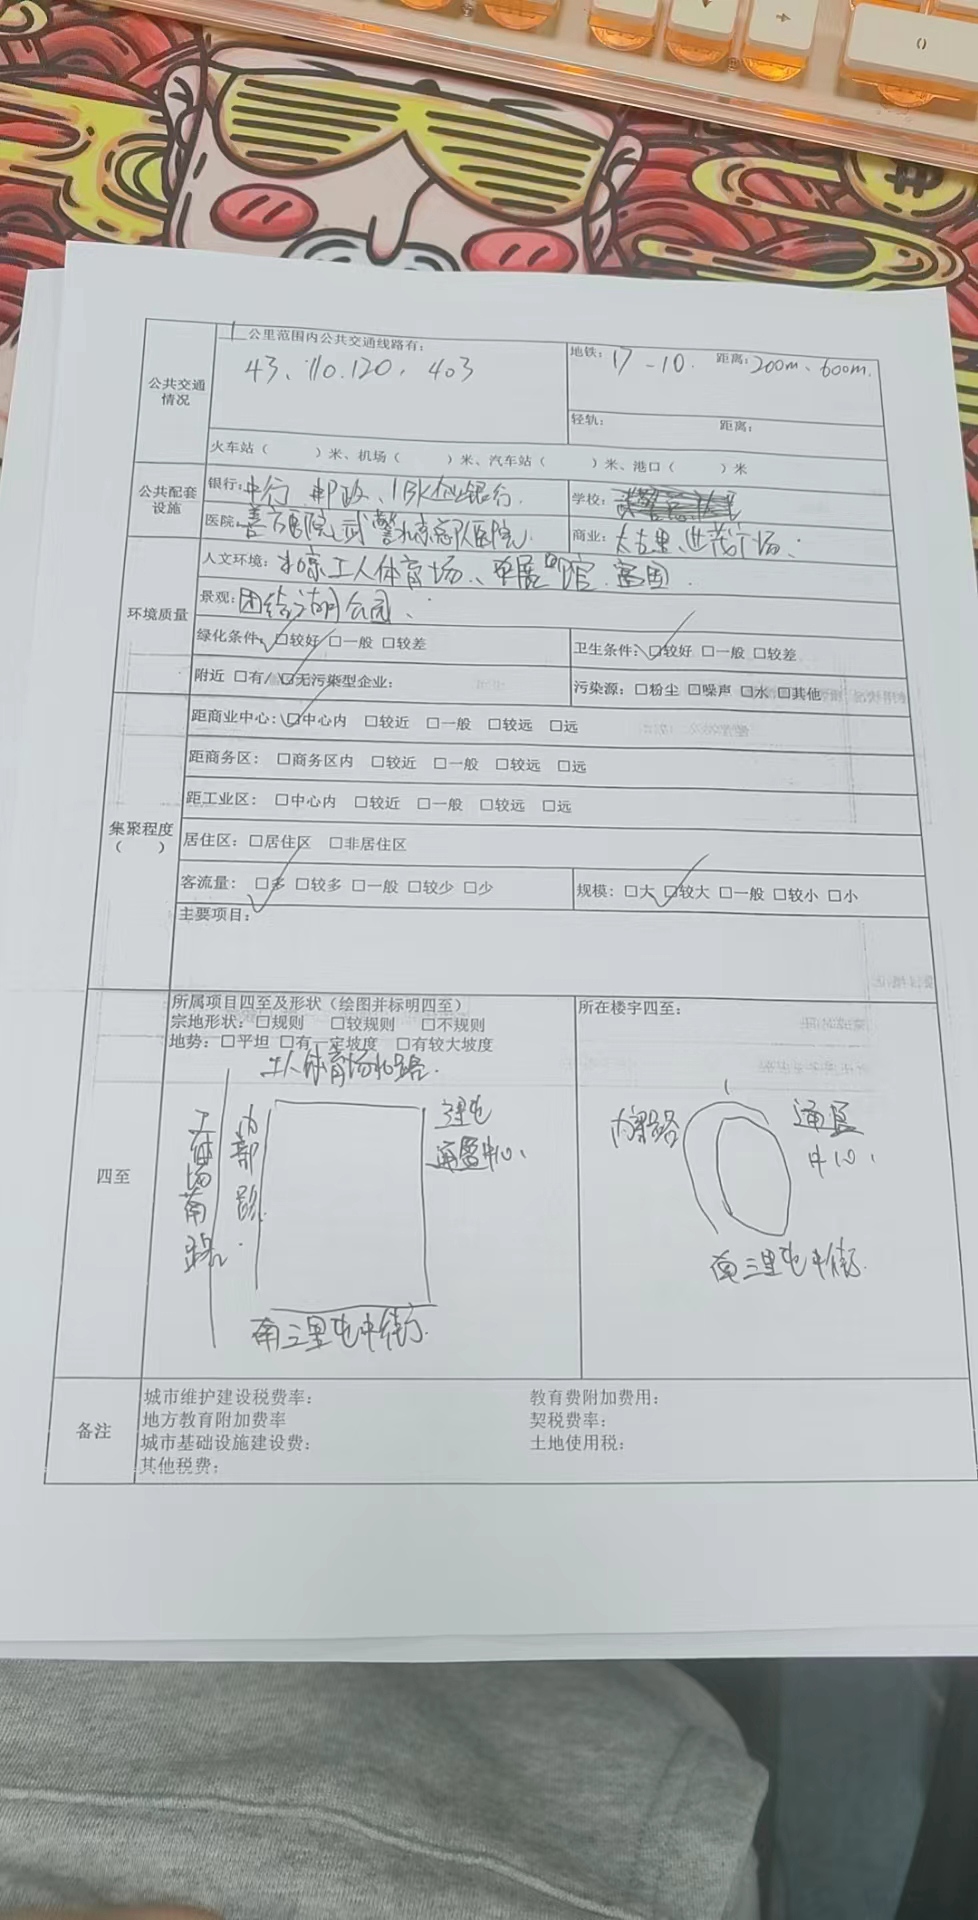 公共交通情况
1 公里范围内公共交通线路有:
43、110.120、403
地铁: 17 - 10. 距离: 200m、600m.
轻轨: 距离:
火车站( )米、机场( )米、汽车站( )米、港口( )米
公共配套设施
银行: 中行 邮政、IBK企业银行.
学校:
医院: 善方医院、武警北京总队医院.
商业: 太古里、世茂广场、
环境质量
人文环境: 北京工人体育场、
景观: 团结湖公园、
绿化条件: ☑较好 □一般 □较差
卫生条件: ☑较好 □一般 □较差
附近 □有/☑无污染型企业:
污染源: □粉尘 □噪声 □水 □其他
集聚程度( )
距商业中心: ☑中心内 □较近 □一般 □较远 □远
距商务区: □商务区内 □较近 □一般 □较远 □远
距工业区: □中心内 □较近 □一般 □较远 □远
居住区: □居住区 □非居住区
客流量: ☑多 □较多 □一般 □较少 □少
规模: □大 ☑较大 □一般 □较小 □小
主要项目:
四至
所属项目四至及形状(绘图并标明四至)
宗地形状: □规则 □较规则 □不规则
地势: □平坦 □有一定坡度 □有较大坡度
工人体育场北路.
内部路.
三里屯
通盈中心、
南三里屯中街.
所在楼宇四至:
内部路
通盈
中心、
南三里屯中街.
备注
城市维护建设税费率: 教育费附加费用:
地方教育附加费率 契税费率:
城市基础设施建设费: 土地使用税:
其他税费: